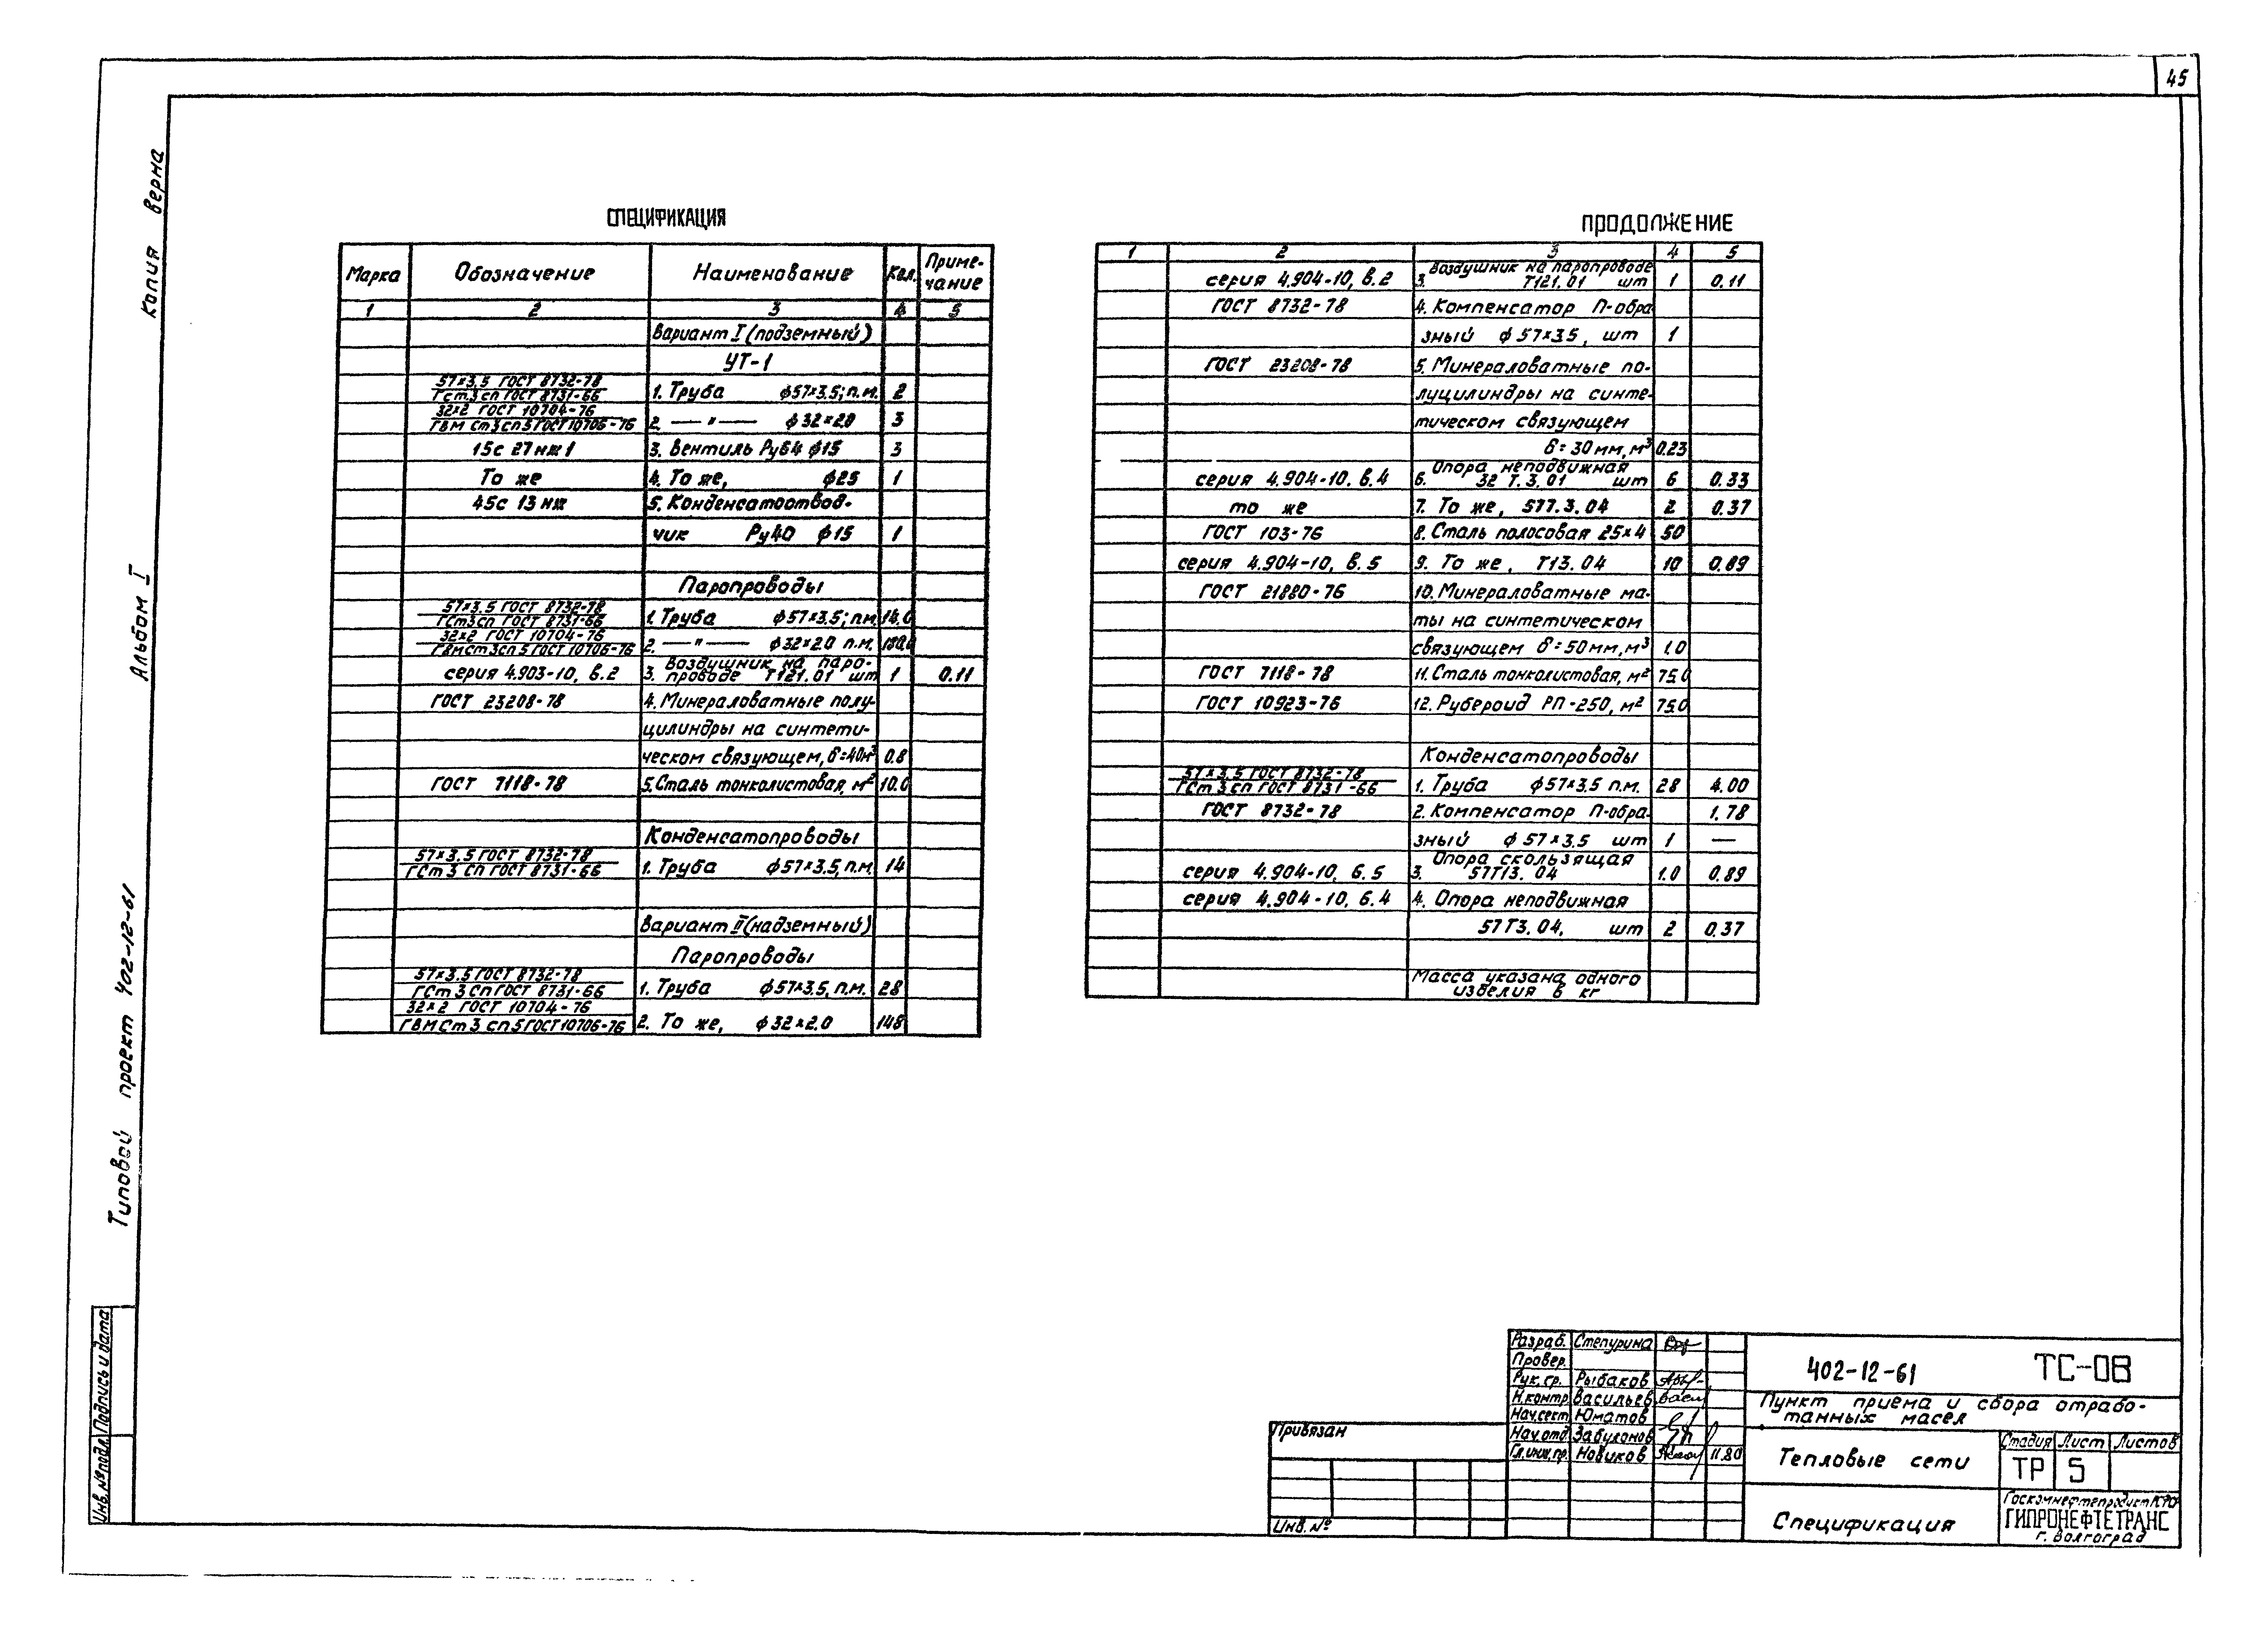 45
Копия верна
Альбом I
Типовой проект 402-12-61
Инв. № подл. Подпись и дата
СПЕЦИФИКАЦИЯ
Марка Обозначение Наименование Кол. Приме-
чание
1 2 3 4 5
Вариант I (подземный)
УТ-1
57×3,5 ГОСТ 8732-78
ГСт3сп ГОСТ 8731-66 1. Труба ф57×3.5; п.м. 2
32×2 ГОСТ 10704-76
ГВМ Ст3сп5 ГОСТ 10706-76 2. —"— ф32×2.0 3
15с 27 нж 1 3. Вентиль Ру64 ф15 3
То же 4. То же, ф25 1
45с 13 нж 5. Конденсатоотвод-
чик Ру40 ф15 1
Паропроводы
57×3.5 ГОСТ 8732-78
ГСт3сп ГОСТ 8731-66 1. Труба ф57×3.5; п.м. 14.0
32×2 ГОСТ 10704-76
ГВМСт3сп5 ГОСТ 10706-76 2. —"— ф32×2.0 п.м.
серия 4.903-10, в.2 3. Воздушник на паро-
проводе Т121.01 шт 1 0.11
ГОСТ 23208-78 4. Минераловатные полу-
цилиндры на синтети-
ческом связующем, б=40м³ 0.8
ГОСТ 7118-78 5. Сталь тонколистовая, м² 10.0
Конденсатопроводы
57×3.5 ГОСТ 8732-78
ГСт3 сп ГОСТ 8731-66 1. Труба ф57×3.5, п.м. 14
Вариант II (надземный)
Паропроводы
57×3.5 ГОСТ 8732-78
ГСт3сп ГОСТ 8731-66 1. Труба ф57×3.5, п.м. 28
32×2 ГОСТ 10704-76
ГВМСт3 сп5 ГОСТ 10706-76 2. То же, ф32×2.0 148
ПРОДОЛЖЕНИЕ
1 2 3 4 5
серия 4.904-10, в.2 3. Воздушник на паропроводе
Т121.01 шт 1 0.11
ГОСТ 8732-78 4. Компенсатор П-обра
зный ф57×3.5, шт 1
ГОСТ 23208-78 5. Минераловатные по-
луцилиндры на синте-
тическом связующем
б=30мм, м³ 0.23
серия 4.904-10. в.4 6. Опора неподвижная
32 Т.3.01 шт 6 0.33
то же 7. То же, 577.3.04 2 0.37
ГОСТ 103-76 8. Сталь полосовая 25×4 50
серия 4.904-10, в.5 9. То же, Т13.04 10 0.89
ГОСТ 21880-76 10. Минераловатные ма-
ты на синтетическом
связующем б=50мм, м³ 1.0
ГОСТ 7118-78 11. Сталь тонколистовая, м² 75.0
ГОСТ 10923-76 12. Рубероид РП-250, м² 75.0
Конденсатопроводы
57×3.5 ГОСТ 8732-78
ГСт3 сп ГОСТ 8731-66 1. Труба ф57×3.5 п.м. 28 4.00
ГОСТ 8732-78 2. Компенсатор П-обра- 1.78
зный ф57×3.5 шт 1 —
серия 4.904-10, в.5 3. Опора скользящая
57Т13.04 1.0 0.89
серия 4.904-10, в.4 4. Опора неподвижная
57Т3.04, шт 2 0.37
Масса указана одного
изделия в кг
Разраб. Степурина
Провер.
Рук. гр. Рыбаков
Н.контр. Васильев
Нач.сект Юматов
Нач.отд Забулонов
Гл.инж.пр. Новиков 11.80
Привязан
Инв. №
402-12-61 ТС-08
Пункт приема и сбора отрабо-
танных масел
Тепловые сети
Стадия Лист Листов
ТР 5
Спецификация
Госкомнефтепродукт
ГИПРОНЕФТЕТРАНС
г. Волгоград